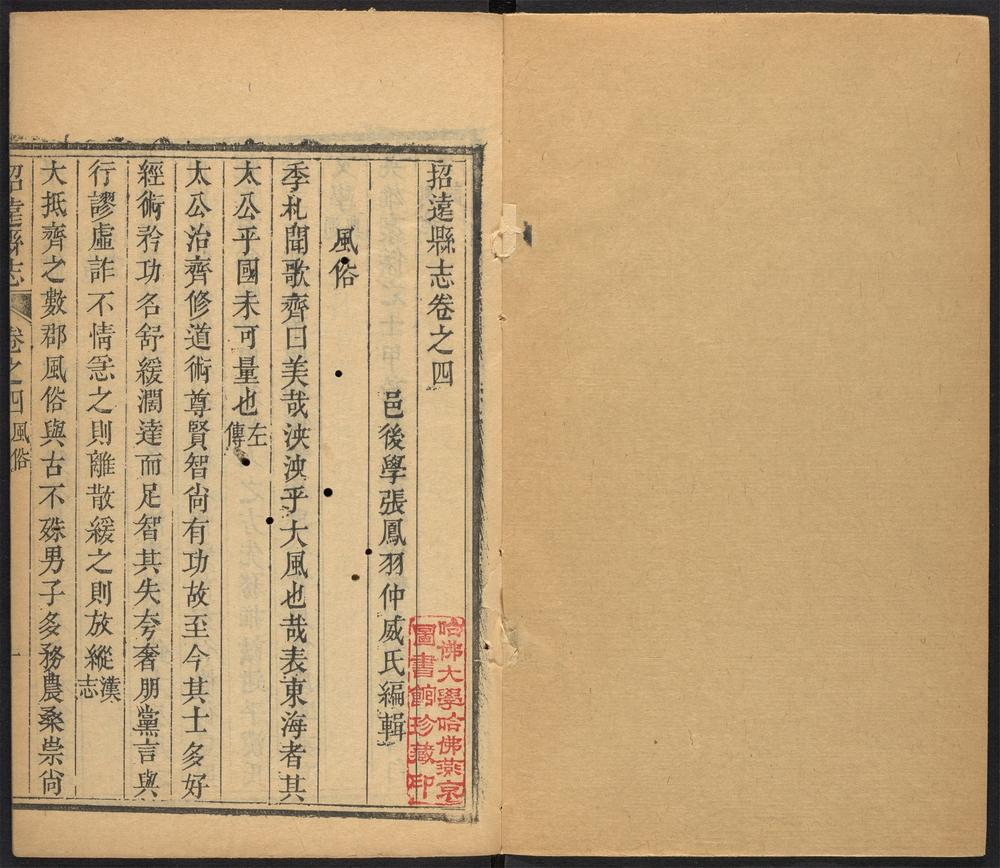 招遠縣志卷之四
邑後學張鳳羽仲威氏編輯
風俗
季札聞歌齊曰美哉泱泱乎大風也哉表東海者其
太公乎國未可量也左傳
太公治齊修道術尊賢智尙有功故至今其士多好
經術矜功名舒緩濶達而足智其失夸奢朋黨言與
行謬虛詐不情急之則離散緩之則放縱漢志
大抵齊之數郡風俗與古不殊男子多務農桑崇尙
招遠縣志 卷之四 風俗 一
哈佛大學哈佛燕京
圖書館珍藏印